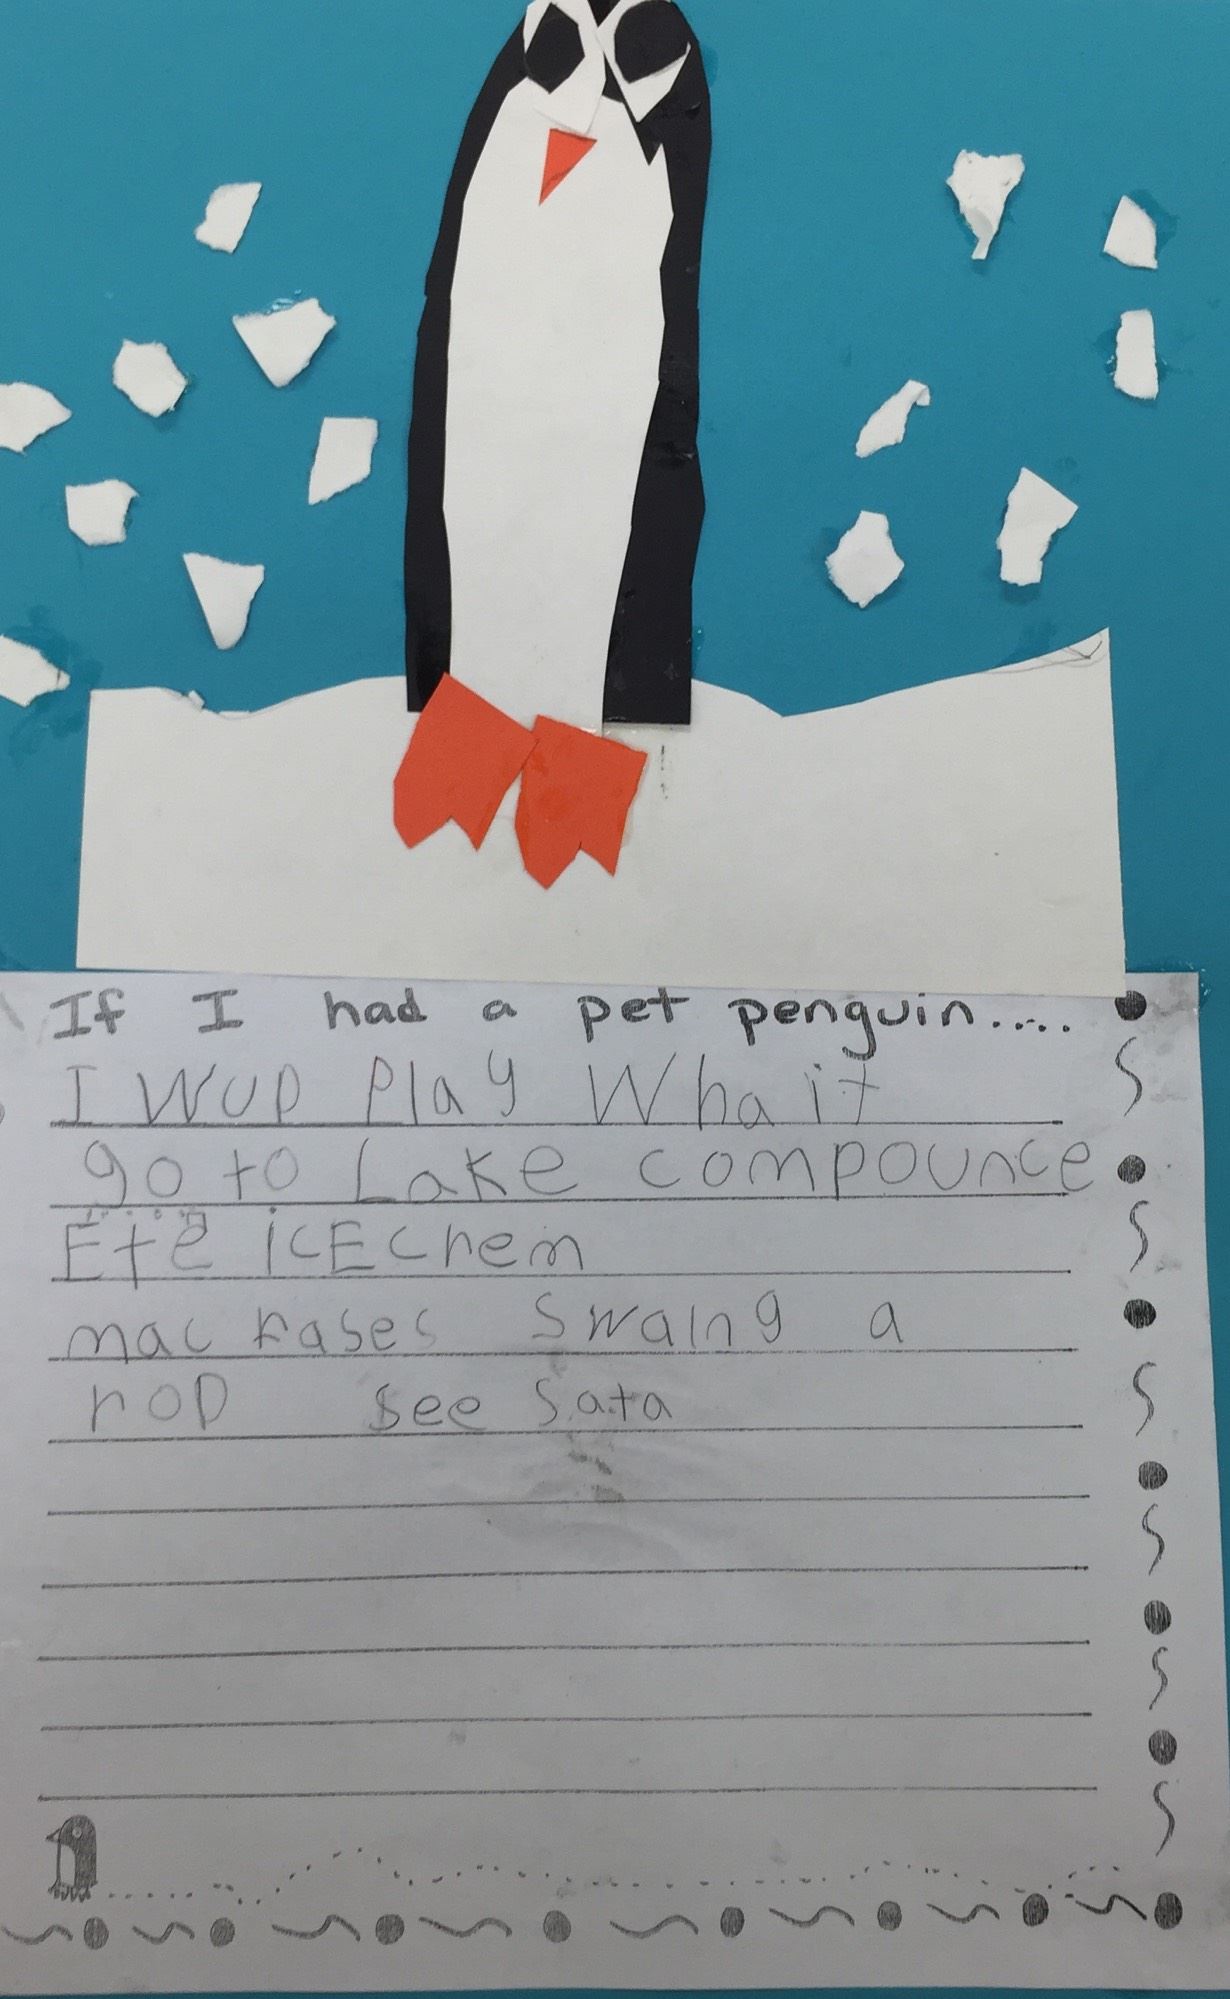 If I had a pet penguin.....
I WUD Play Wha it
go to Lake compounce
Ete icEchem
mac rases Swaing a
rod see Sata